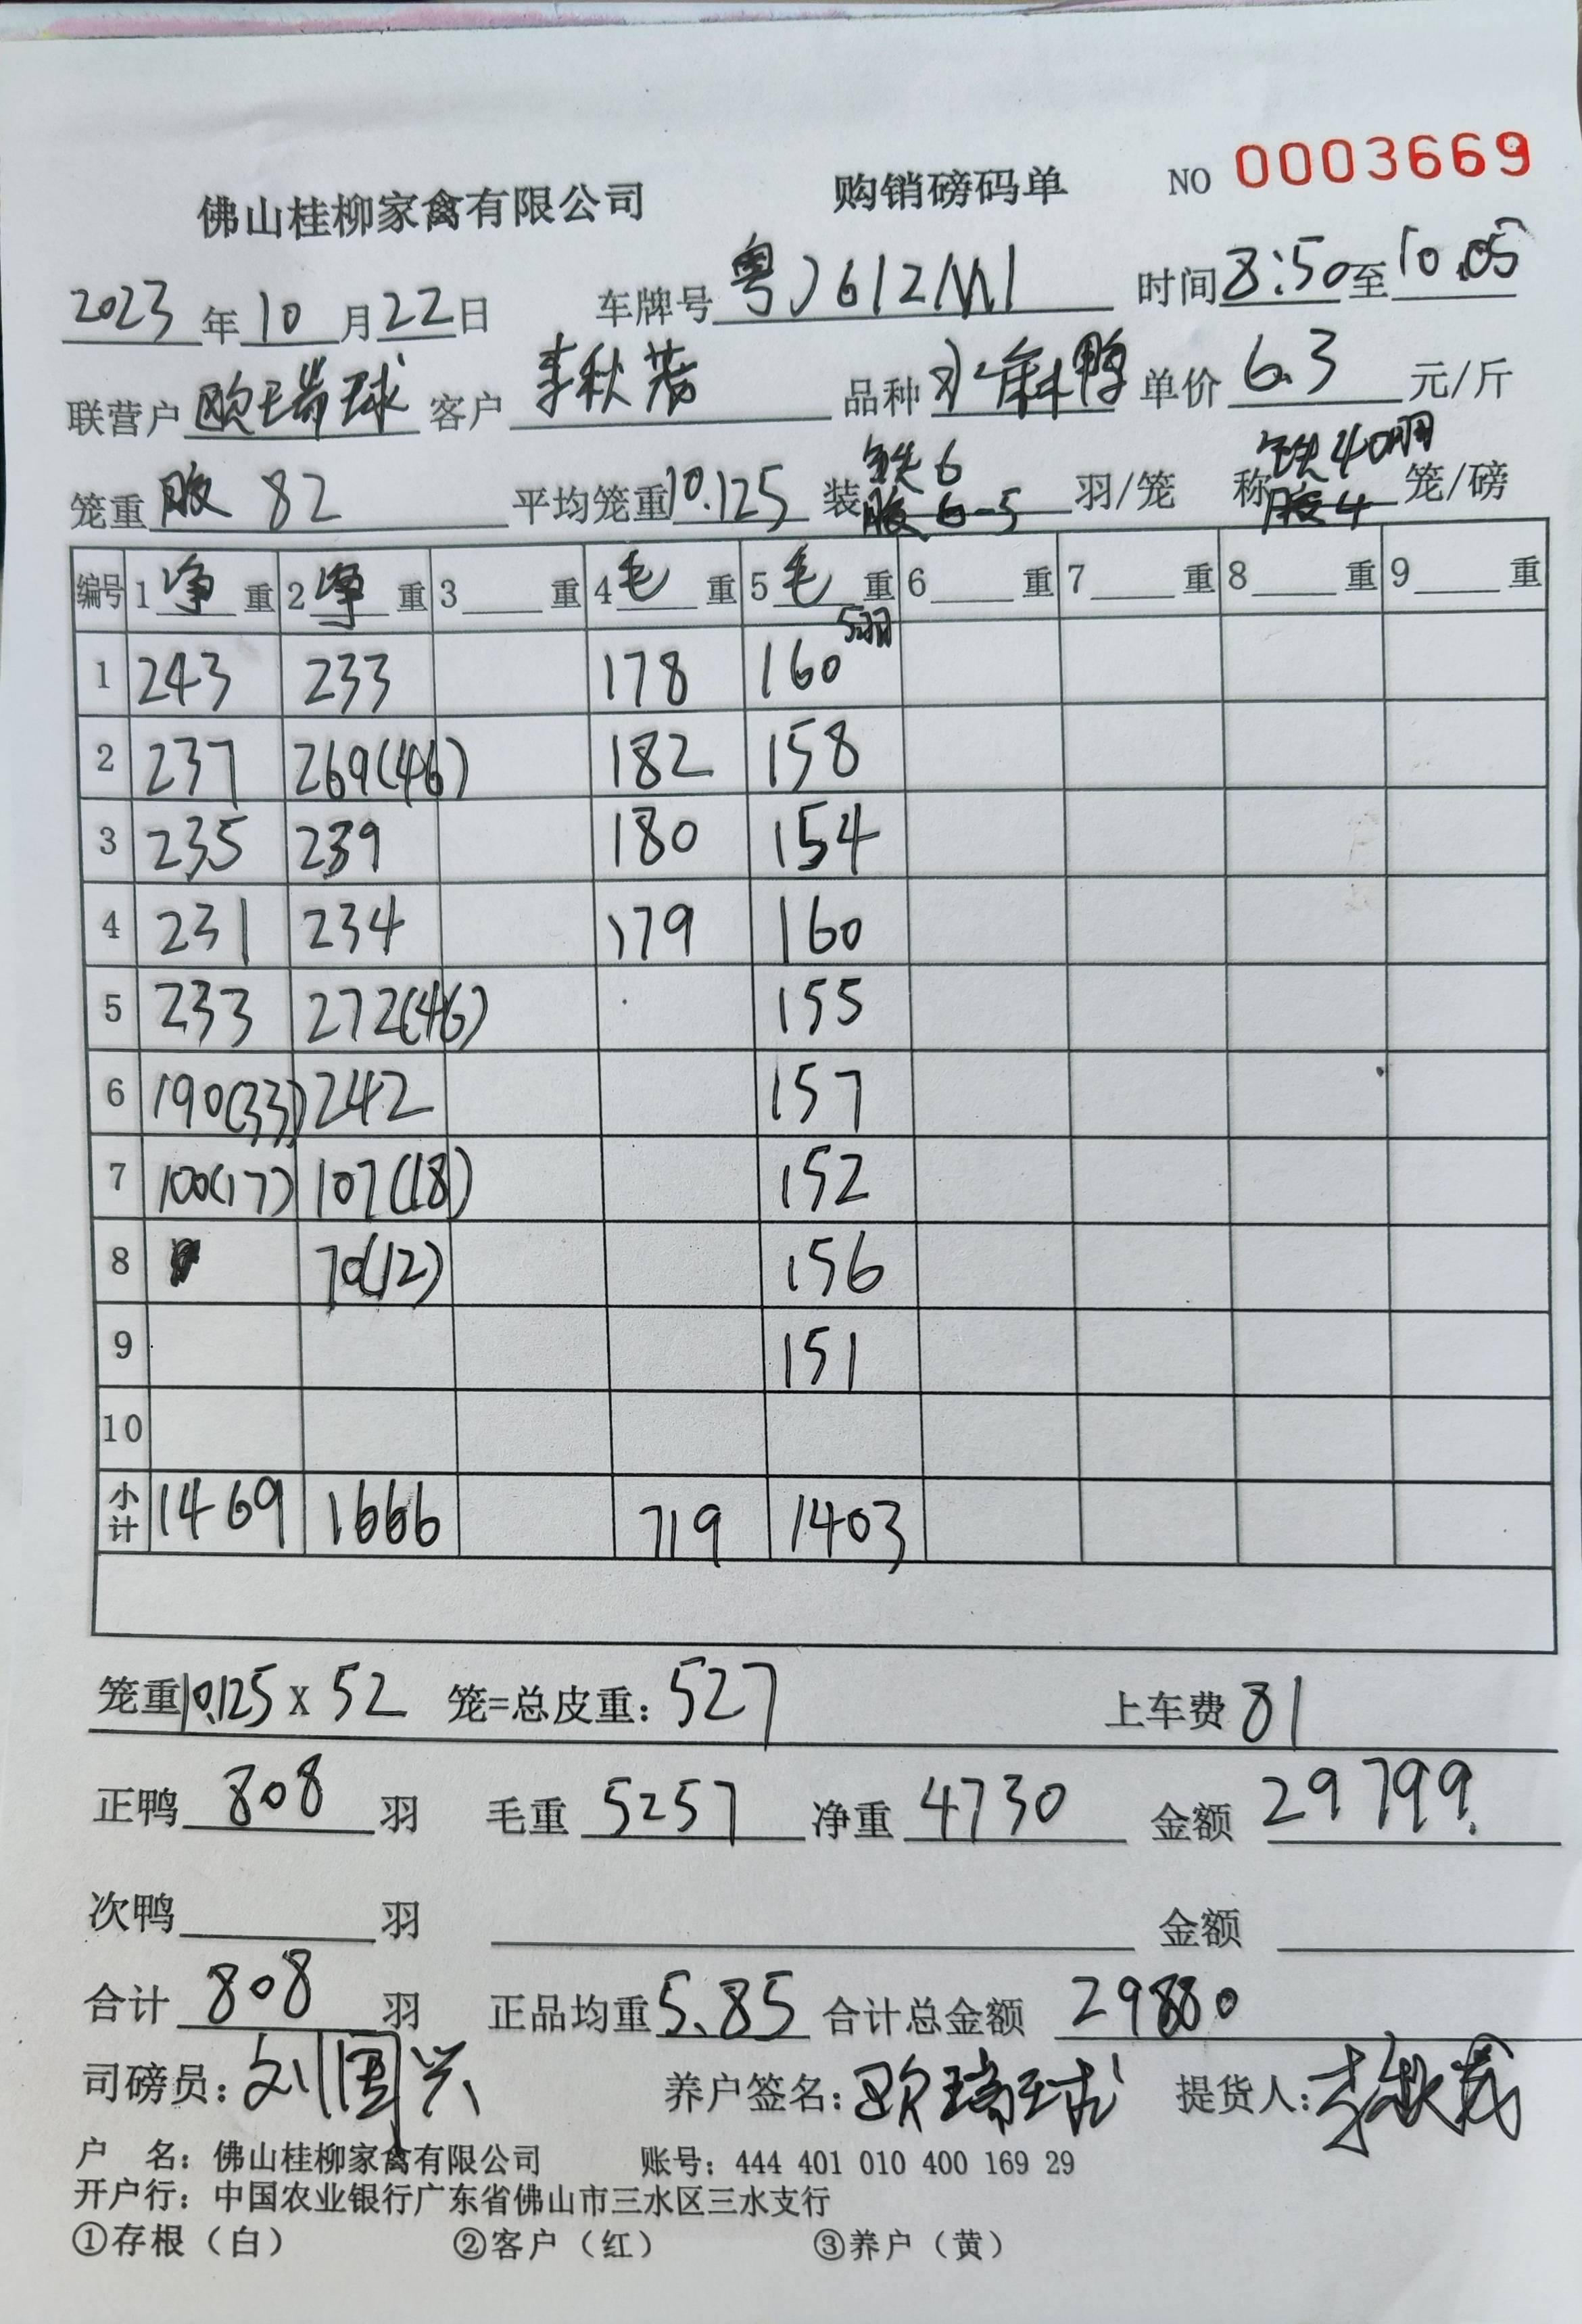 佛山桂柳家禽有限公司 购销磅码单 NO 0003669
2023年10月22日 车牌号 粤J612M1 时间8:50至10.05
联营户 欧瑞球 客户 李秋茂 品种 鸭 单价 6.3 元/斤
笼重 胶 82 平均笼重10.125 装 铁6 胶6-5 羽/笼 称 铁40羽 胶4 笼/磅
编号 1净重 2净重 3重 4毛重 5毛重 6重 7重 8重 9重
1 243 233 178 160 5羽
2 237 269(46) 182 158
3 235 239 180 154
4 231 234 179 160
5 233 272(46) 155
6 190(33) 242 157
7 100(17) 107(18) 152
8 70(12) 156
9 151
10
小计 1469 1666 719 1403
笼重10.125 x 52 笼=总皮重:527 上车费 81
正鸭 808 羽 毛重 5257 净重 4730 金额 29799.
次鸭 羽 金额
合计 808 羽 正品均重5.85 合计总金额 29880
司磅员:刘国兴 养户签名:欧瑞球 提货人:李秋茂
户 名:佛山桂柳家禽有限公司 账号:444 401 010 400 169 29
开户行:中国农业银行广东省佛山市三水区三水支行
①存根(白) ②客户(红) ③养户(黄)